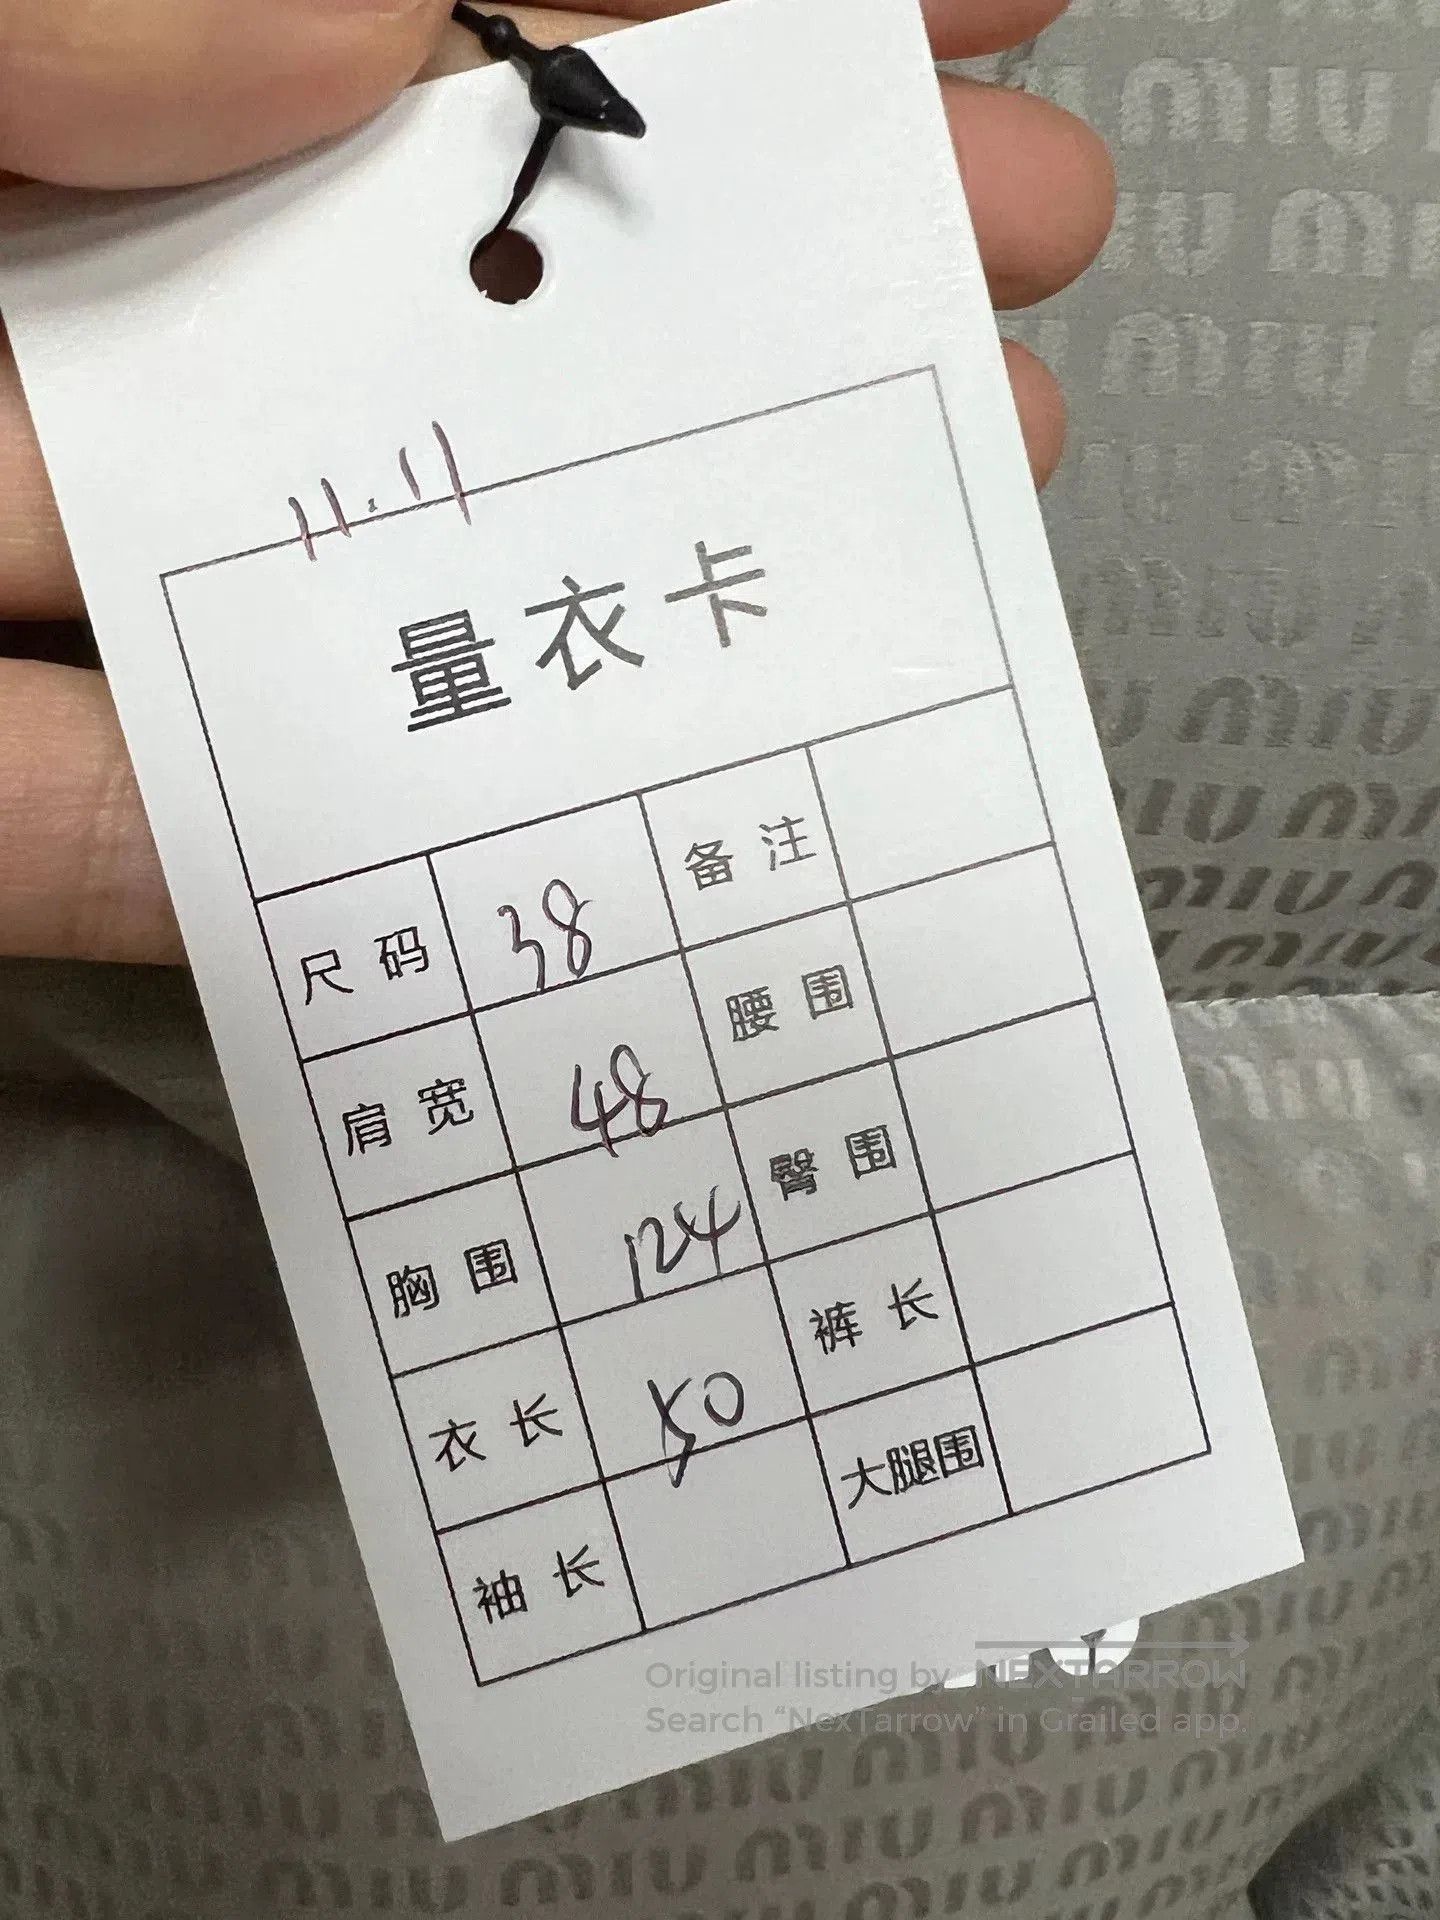 11.11
量衣卡
尺码 38 备注
肩宽 48 腰围
胸围 124 臀围
衣长 50 裤长
袖长 大腿围
Original listing by NEXTARROW
Search “NexTarrow” in Grailed app.
miu miu